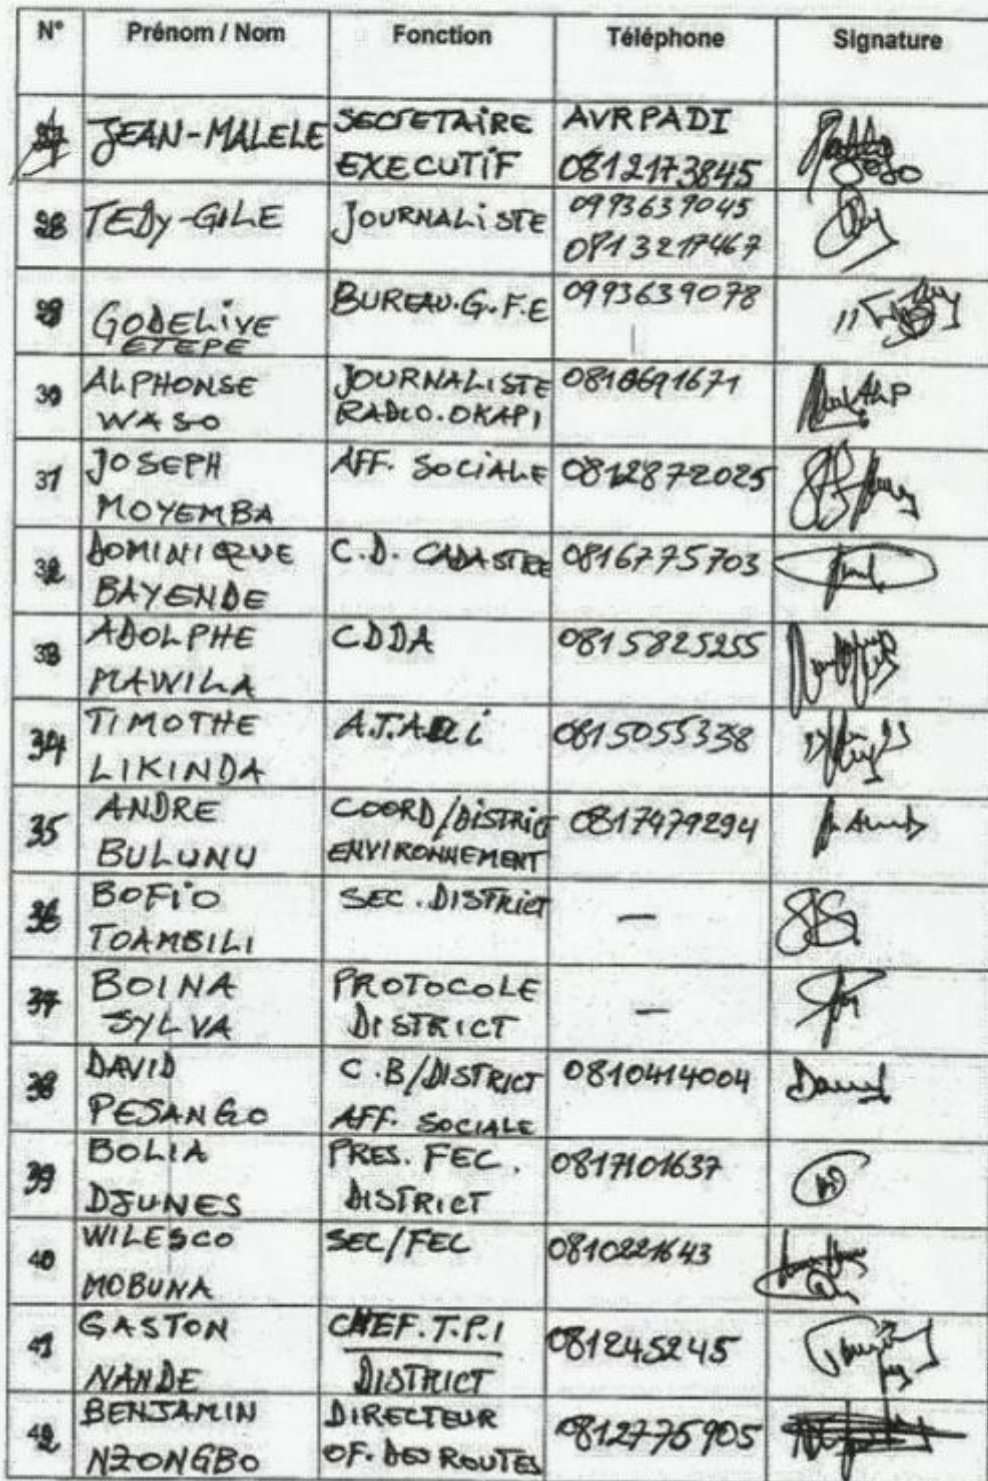 N° Prénom / Nom Fonction Téléphone Signature
27 JEAN-MALELE SECRETAIRE EXECUTIF AVRPADI 0812173845
28 TEDY-GILE JOURNALISTE 0993639045 0813217467
29 GODELIVE ETEPE BUREAU.G.F.E 0993639078
30 ALPHONSE WASO JOURNALISTE RADIO.OKAPI 0810691671
31 JOSEPH MOYEMBA AFF. SOCIALE 0812872025
32 DOMINIQUE BAYENDE C.D. CADASTRE 0816775703
33 ADOLPHE MAWILA CDDA 0815825255
34 TIMOTHE LIKINDA 0815055338
35 ANDRE BULUNU COORD/DISTRICT ENVIRONNEMENT 0817479294
36 BOFIO TOAMBILI SEC.DISTRICT —
37 BOINA SYLVA PROTOCOLE DISTRICT —
38 DAVID PESANGO C.B/DISTRICT AFF. SOCIALE 0810414004
39 BOLIA DJUNES PRES. FEC. DISTRICT 0817101637
40 WILESCO MOBUNA SEC/FEC 0810221643
41 GASTON NANDE CHEF.T.P.I DISTRICT 081245245
42 BENJAMIN NZONGBO DIRECTEUR OF. DES ROUTES 0812775905